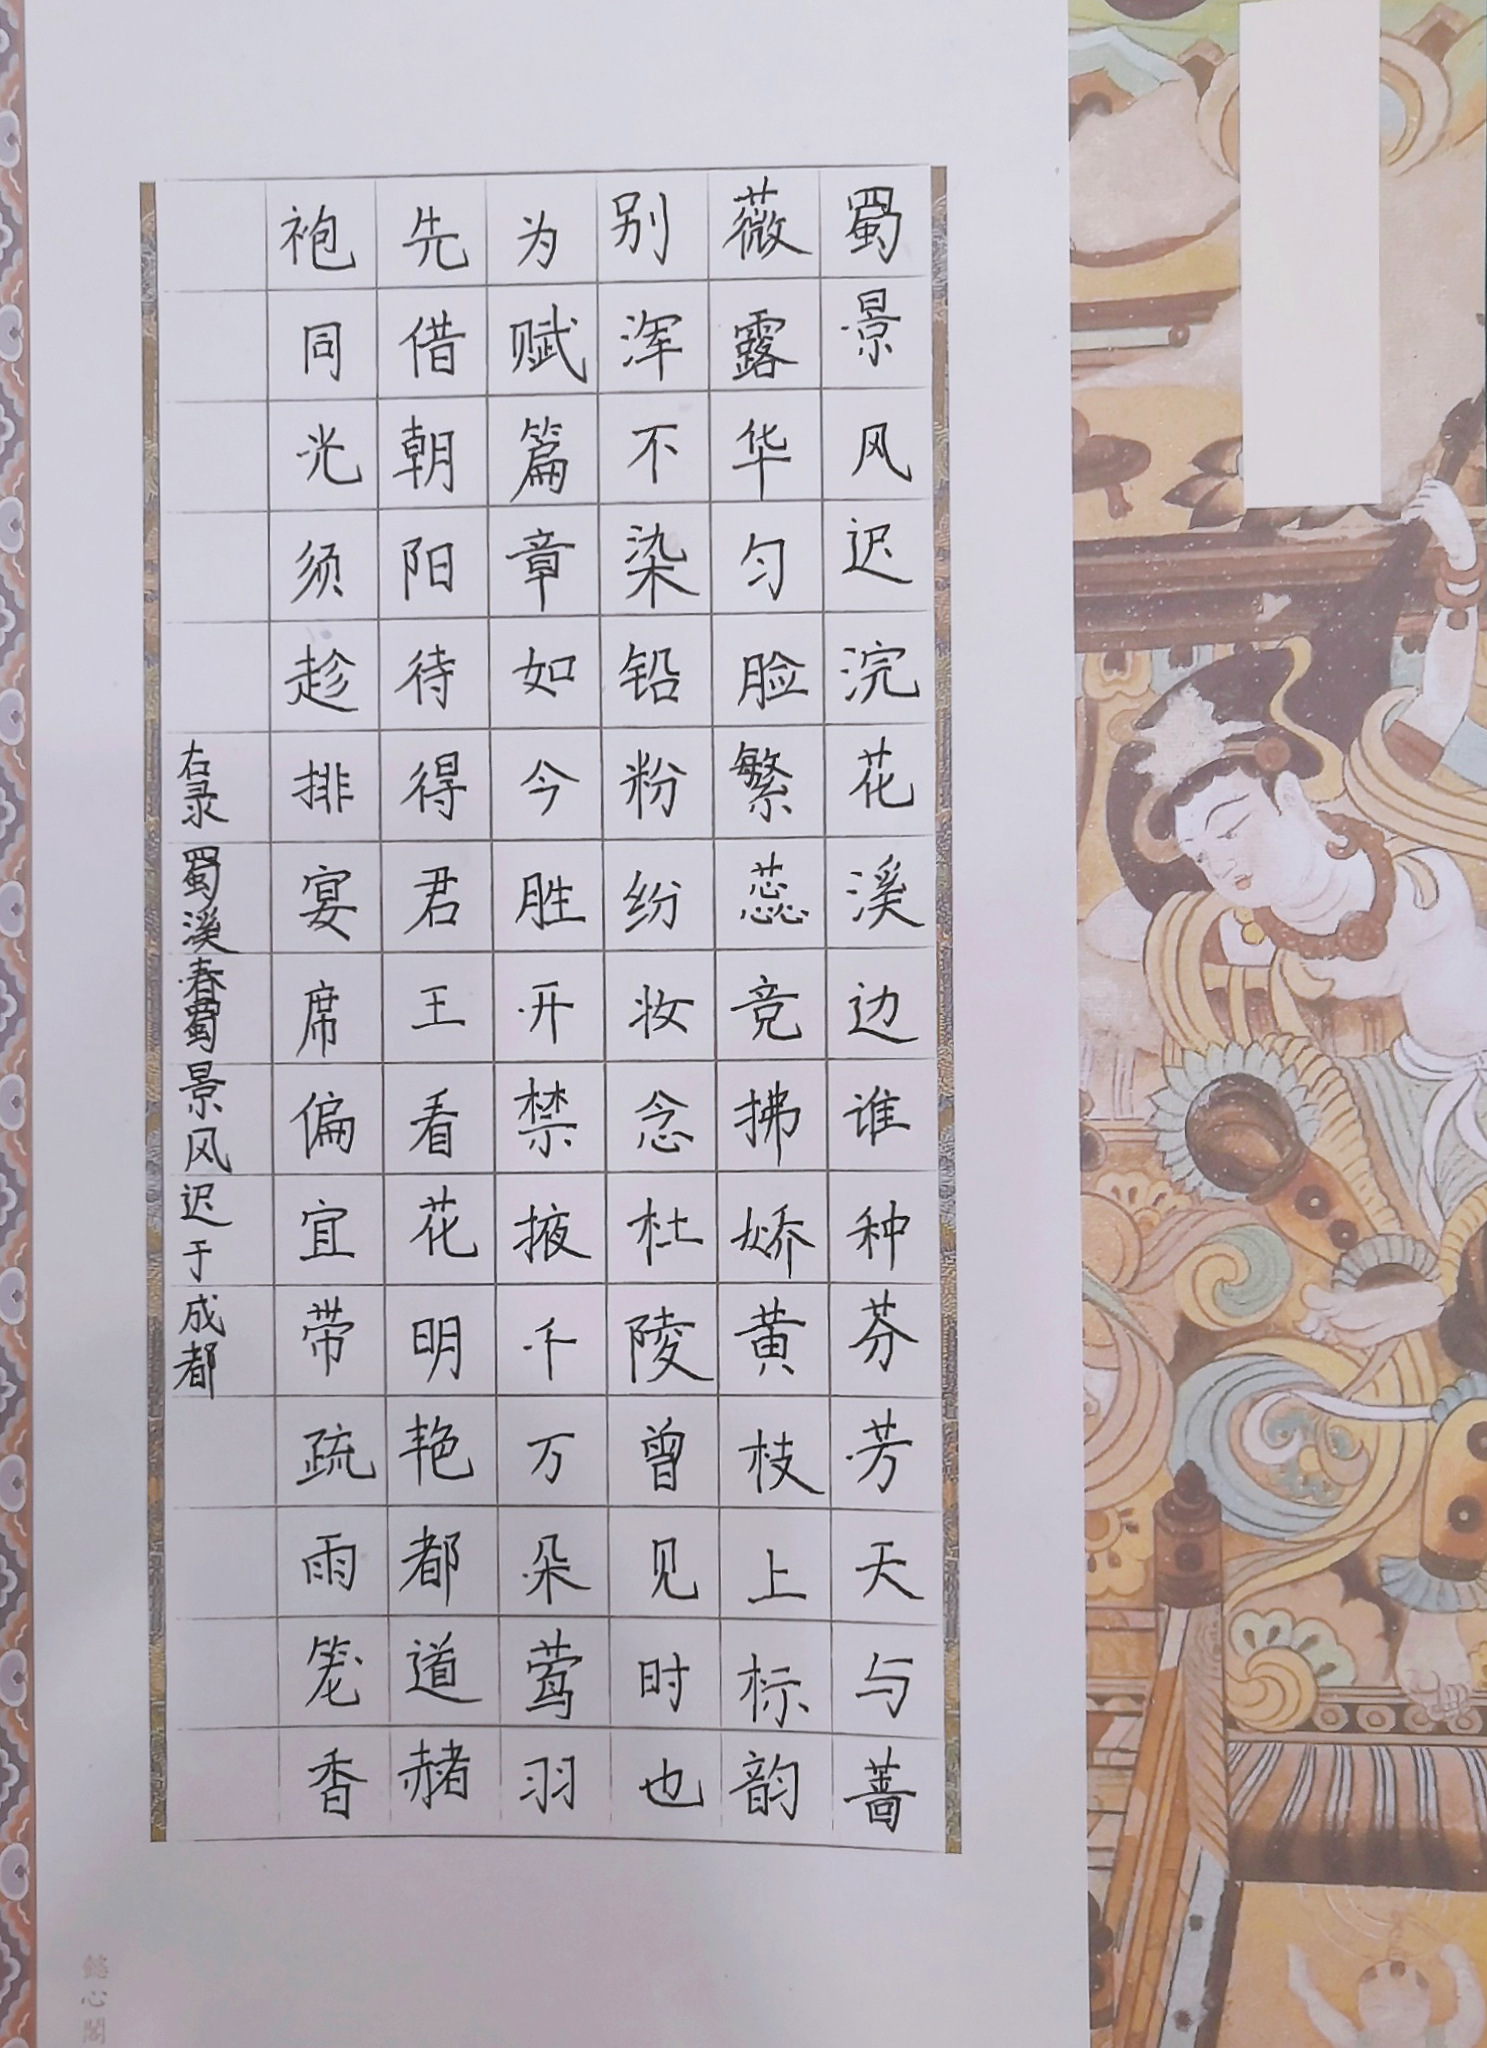 蜀景风迟浣花溪边谁种芬芳天与蔷
薇露华匀脸繁蕊竞拂娇黄枝上标韵
别浑不染铅粉纷妆念杜陵曾见时也
为赋篇章如今胜开禁掖千万朵莺羽
先借朝阳待得君王看花明艳都道赭
袍同光须趁排宴席偏宜带疏雨笼香
右录蜀溪春蜀景风迟于成都
懿心阁